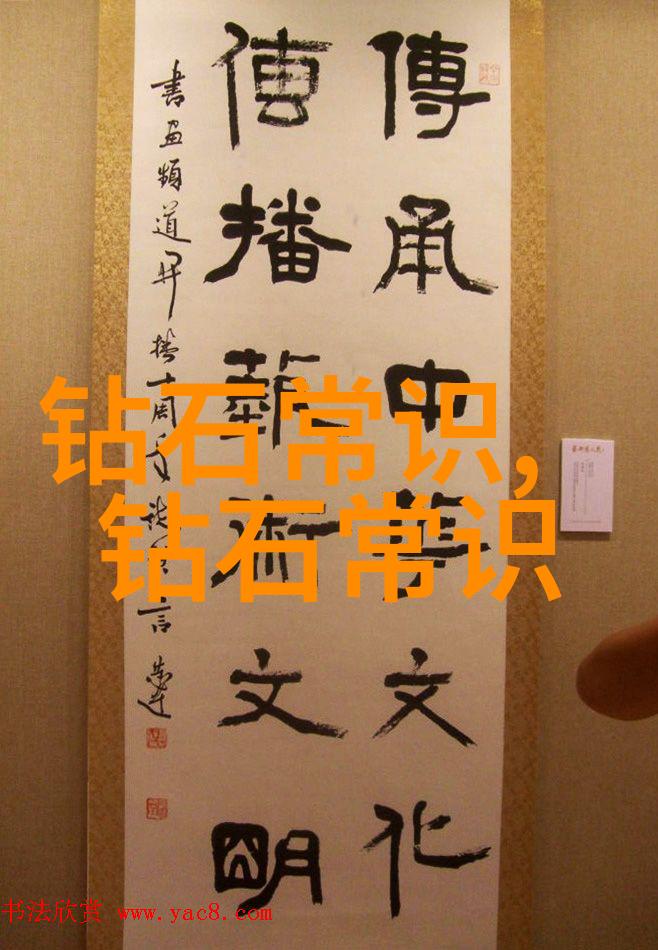 傳承中華文化
傳播藝術文明
書画頻道開播十周年
钻石常识，
钻石常识
书法欣赏 www.yac8.com